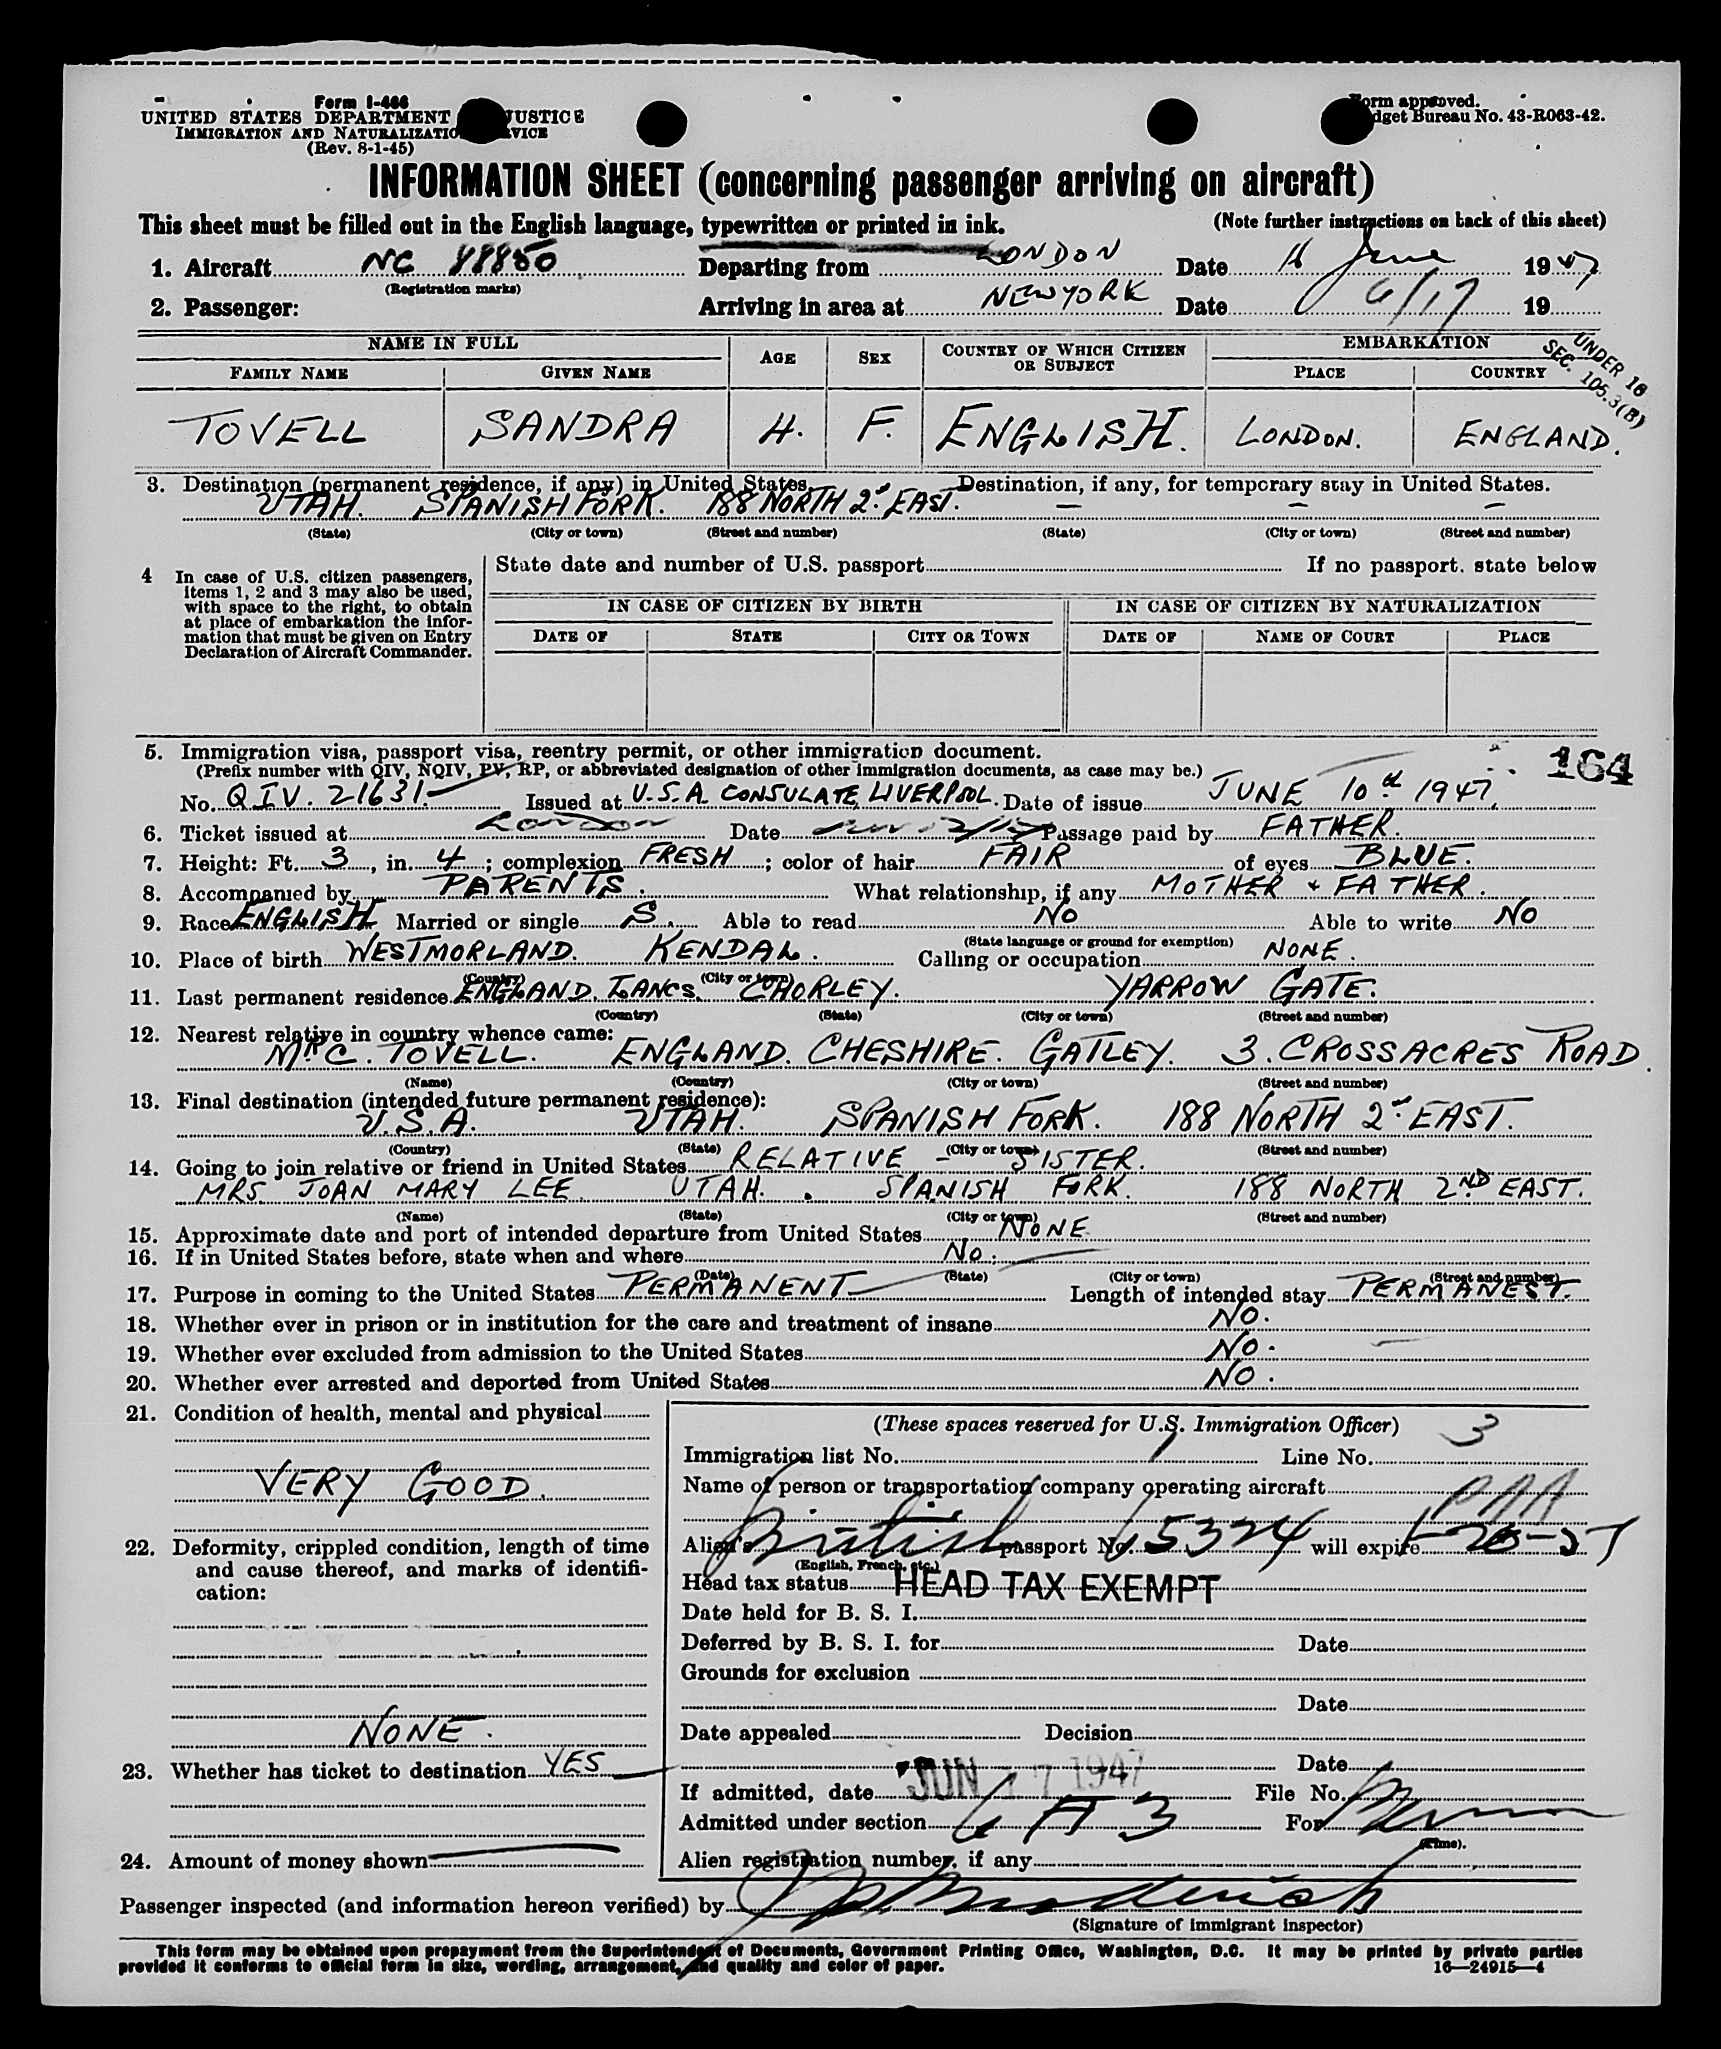 Form I-466
UNITED STATES DEPARTMENT JUSTICE
IMMIGRATION AND NATURALIZATIO VICE
(Rev. 8-1-45)
Form approved.
dget Bureau No. 43-R063-42.
INFORMATION SHEET (concerning passenger arriving on aircraft)
This sheet must be filled out in the English language, typewritten or printed in ink.
(Note further instructions on back of this sheet)
1. Aircraft NC 88850 Departing from LONDON Date 16 June 1947
(Registration marks)
2. Passenger: Arriving in area at NEW YORK Date 6/17 19
NAME IN FULL AGE SEX COUNTRY OF WHICH CITIZEN OR SUBJECT EMBARKATION
FAMILY NAME GIVEN NAME PLACE COUNTRY
UNDER 16
SEC. 105.3(B)
TOVELL SANDRA 4. F. ENGLISH. LONDON. ENGLAND.
3. Destination (permanent residence, if any) in United States. Destination, if any, for temporary stay in United States.
UTAH. SPANISH FORK. 188 NORTH 2. EAST. – – –
(State) (City or town) (Street and number) (State) (City or town) (Street and number)
4 In case of U.S. citizen passengers, items 1, 2 and 3 may also be used, with space to the right, to obtain at place of embarkation the information that must be given on Entry Declaration of Aircraft Commander.
State date and number of U.S. passport If no passport. state below
IN CASE OF CITIZEN BY BIRTH IN CASE OF CITIZEN BY NATURALIZATION
DATE OF STATE CITY OR TOWN DATE OF NAME OF COURT PLACE
5. Immigration visa, passport visa, reentry permit, or other immigration document.
(Prefix number with QIV, NQIV, PV, RP, or abbreviated designation of other immigration documents, as case may be.)
164
No. QIV. 21631. Issued at U.S.A. CONSULATE, LIVERPOOL. Date of issue JUNE 10th 1947.
6. Ticket issued at London Date Passage paid by FATHER.
7. Height: Ft. 3, in. 4; complexion FRESH; color of hair FAIR of eyes BLUE.
8. Accompanied by PARENTS. What relationship, if any MOTHER + FATHER.
9. Race ENGLISH Married or single S. Able to read NO Able to write NO
(State language or ground for exemption)
10. Place of birth WESTMORLAND. KENDAL. Calling or occupation NONE.
(Country) (City or town)
11. Last permanent residence ENGLAND. LANCS. CHORLEY. YARROW GATE.
(Country) (State) (City or town) (Street and number)
12. Nearest relative in country whence came:
MR C. TOVELL. ENGLAND. CHESHIRE. GATLEY. 3. CROSSACRES ROAD.
(Name) (Country) (City or town) (Street and number)
13. Final destination (intended future permanent residence):
U.S.A. UTAH. SPANISH FORK. 188 NORTH 2. EAST.
(Country) (State) (City or town) (Street and number)
14. Going to join relative or friend in United States RELATIVE – SISTER.
MRS. JOAN MARY LEE. UTAH. SPANISH FORK. 188 NORTH 2ND EAST.
(Name) (State) (City or town) (Street and number)
15. Approximate date and port of intended departure from United States NONE.
16. If in United States before, state when and where NO.
(Date) (State) (City or town) (Street and number)
17. Purpose in coming to the United States PERMANENT Length of intended stay PERMANEST.
18. Whether ever in prison or in institution for the care and treatment of insane NO.
19. Whether ever excluded from admission to the United States NO.
20. Whether ever arrested and deported from United States NO.
21. Condition of health, mental and physical
VERY GOOD.
22. Deformity, crippled condition, length of time and cause thereof, and marks of identification:
NONE.
23. Whether has ticket to destination YES
24. Amount of money shown
(These spaces reserved for U.S. Immigration Officer)
Immigration list No. 1 Line No. 3
Name of person or transportation company operating aircraft PAA
Alien's British passport No. 65324 will expire
(English, French, etc.)
Head tax status HEAD TAX EXEMPT
Date held for B. S. I.
Deferred by B. S. I. for Date
Grounds for exclusion
Date
Date appealed Decision
Date
If admitted, date JUN 17 1947 File No.
Admitted under section 6 A 3 For
(Time).
Alien registration number, if any
Passenger inspected (and information hereon verified) by
(Signature of immigrant inspector)
This form may be obtained upon prepayment from the Superintendent of Documents, Government Printing Office, Washington, D.C. It may be printed by private parties
provided it conforms to official form in size, wording, arrangement, and quality and color of paper.
16—24915—4